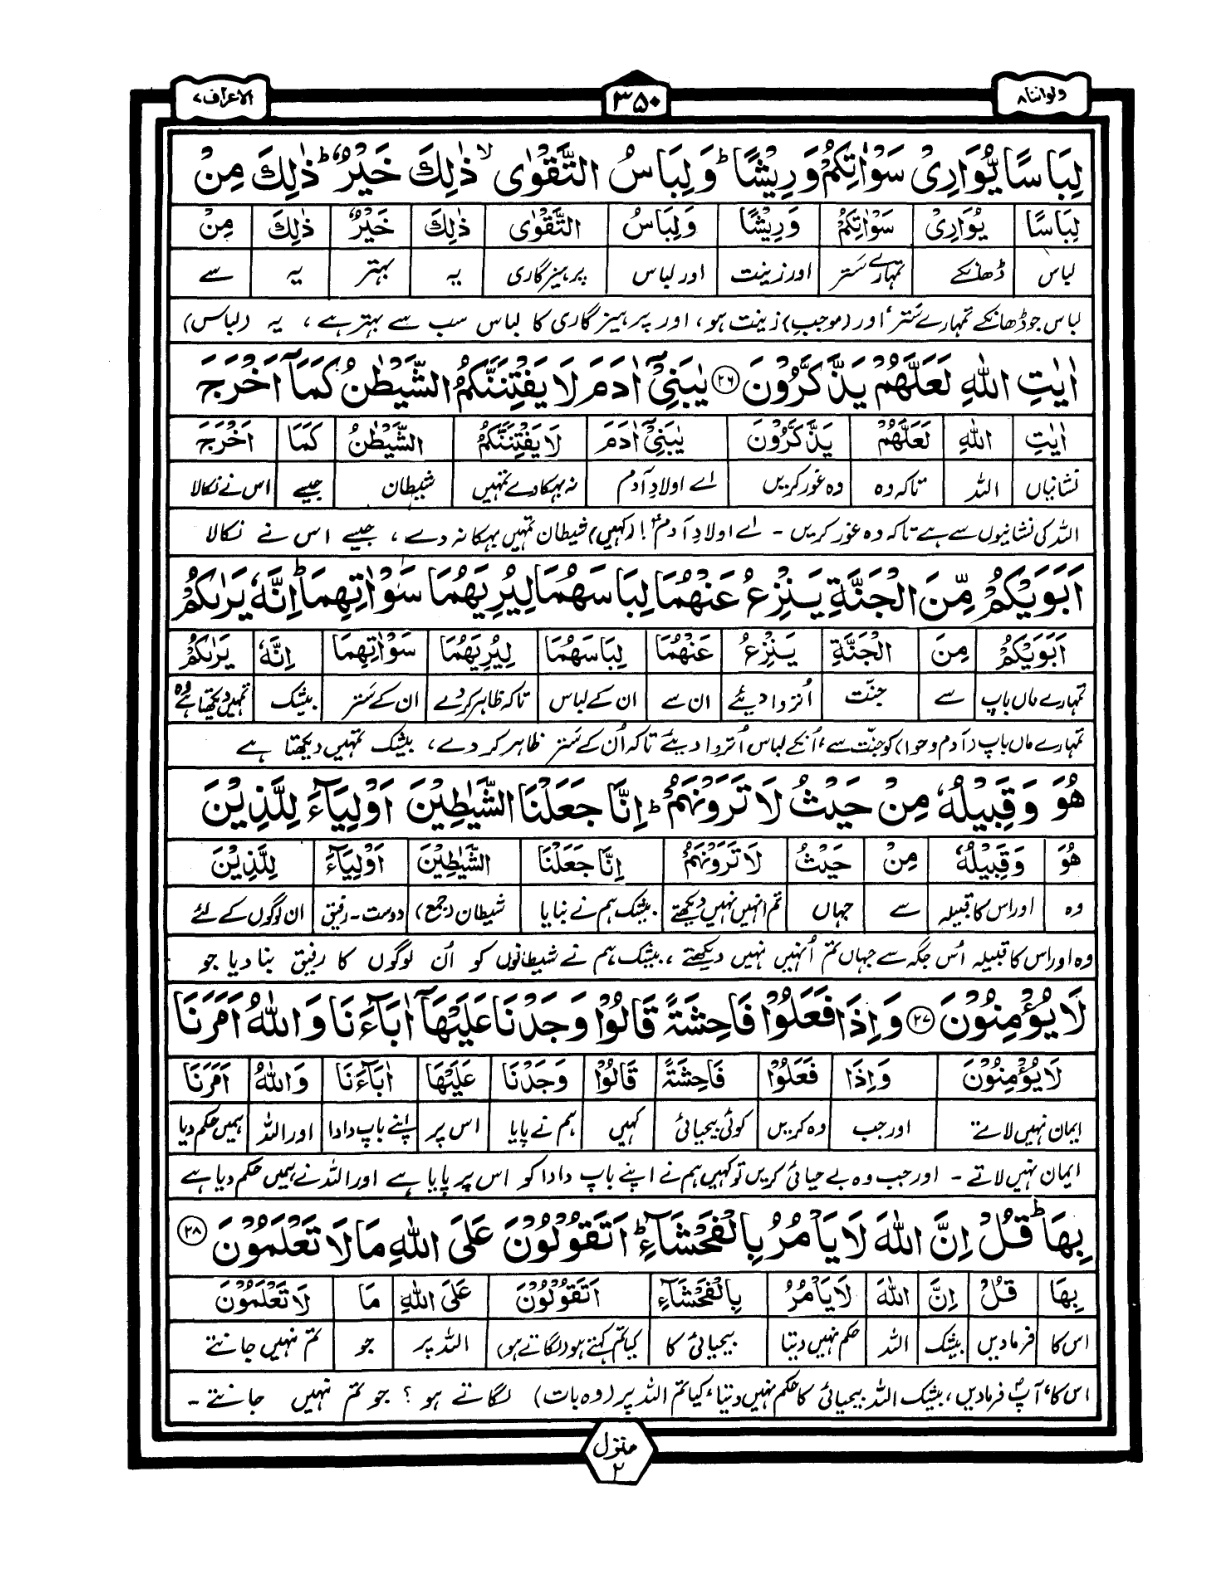 ولواننا ۸
۳۵۰
الاعراف ۷
لِبَاسًا يُّوَارِىْ سَوْاٰتِكُمْ وَرِيْشًا ؕ وَلِبَاسُ التَّقْوٰى ۙ ذٰلِكَ خَيْرٌ ؕ ذٰلِكَ مِنْ
لِبَاسًا يُوَارِىْ سَوْاٰتِكُمْ وَرِيْشًا وَلِبَاسُ التَّقْوٰى ذٰلِكَ خَيْرٌ ذٰلِكَ مِنْ
لباس ڈھانکے تمہارے ستر اور زینت اور لباس پرہیزگاری یہ بہتر یہ سے
لباس جو ڈھانکے تمہارے ستر اور (موجب) زینت ہو، اور پرہیزگاری کا لباس سب سے بہتر ہے، یہ (لباس)
اٰيٰتِ اللّٰهِ لَعَلَّهُمْ يَذَّكَّرُوْنَ ۝۲۶ يٰبَنِىْٓ اٰدَمَ لَا يَفْتِنَنَّكُمُ الشَّيْطٰنُ كَمَآ اَخْرَجَ
اٰيٰتِ اللّٰهِ لَعَلَّهُمْ يَذَّكَّرُوْنَ يٰبَنِىْٓ اٰدَمَ لَا يَفْتِنَنَّكُمُ الشَّيْطٰنُ كَمَا اَخْرَجَ
نشانیاں اللہ تاکہ وہ وہ غور کریں اے اولادِ آدم نہ بہکا دے تمہیں شیطان جیسے اس نے نکالا
اللہ کی نشانیوں سے ہے تاکہ وہ غور کریں - اے اولادِ آدم! (کہیں) شیطان تمہیں بہکا نہ دے، جیسے اس نے نکالا
اَبَوَيْكُمْ مِّنَ الْجَنَّةِ يَنْزِعُ عَنْهُمَا لِبَاسَهُمَا لِيُرِيَهُمَا سَوْاٰتِهِمَا ؕ اِنَّهٗ يَرٰىكُمْ
اَبَوَيْكُمْ مِنَ الْجَنَّةِ يَنْزِعُ عَنْهُمَا لِبَاسَهُمَا لِيُرِيَهُمَا سَوْاٰتِهِمَا اِنَّهٗ يَرٰىكُمْ
تمہارے ماں باپ سے جنّت اُتروا دیئے ان سے ان کے لباس تاکہ ظاہر کر دے ان کے ستر بیشک تمہیں دیکھتا ہے وہ
تمہارے ماں باپ (آدم و حوا) کو جنّت سے، اُنکے لباس اُتروا دیئے تاکہ اُن کے ستر ظاہر کر دے، بیشک تمہیں دیکھتا ہے
هُوَ وَقَبِيْلُهٗ مِنْ حَيْثُ لَا تَرَوْنَهُمْ ؕ اِنَّا جَعَلْنَا الشَّيٰطِيْنَ اَوْلِيَآءَ لِلَّذِيْنَ
هُوَ وَقَبِيْلُهٗ مِنْ حَيْثُ لَا تَرَوْنَهُمْ اِنَّا جَعَلْنَا الشَّيٰطِيْنَ اَوْلِيَآءَ لِلَّذِيْنَ
وہ اور اس کا قبیلہ سے جہاں تم انہیں نہیں دیکھتے بیشک ہم نے بنایا شیطان (جمع) دوست - رفیق ان لوگوں کے لئے
وہ اور اس کا قبیلہ اُس جگہ سے جہاں تم اُنہیں نہیں دیکھتے، بیشک ہم نے شیطانوں کو اُن لوگوں کا رفیق بنا دیا جو
لَا يُؤْمِنُوْنَ ۝۲۷ وَاِذَا فَعَلُوْا فَاحِشَةً قَالُوْا وَجَدْنَا عَلَيْهَآ اٰبَآءَنَا وَاللّٰهُ اَمَرَنَا
لَا يُؤْمِنُوْنَ وَاِذَا فَعَلُوْا فَاحِشَةً قَالُوْا وَجَدْنَا عَلَيْهَا اٰبَآءَنَا وَاللّٰهُ اَمَرَنَا
ایمان نہیں لاتے اور جب وہ کریں کوئی بیحیائی کہیں ہم نے پایا اس پر اپنے باپ دادا اور اللہ ہمیں حکم دیا
ایمان نہیں لاتے - اور جب وہ بے حیائی کریں تو کہیں ہم نے اپنے باپ دادا کو اس پر پایا ہے اور اللہ نے ہمیں حکم دیا ہے
بِهَا ؕ قُلْ اِنَّ اللّٰهَ لَا يَاْمُرُ بِالْفَحْشَآءِ ؕ اَتَقُوْلُوْنَ عَلَى اللّٰهِ مَا لَا تَعْلَمُوْنَ ۝۲۸
بِهَا قُلْ اِنَّ اللّٰهَ لَا يَاْمُرُ بِالْفَحْشَآءِ اَتَقُوْلُوْنَ عَلَى اللّٰهِ مَا لَا تَعْلَمُوْنَ
اس کا فرما دیں بیشک اللہ حکم نہیں دیتا بیحیائی کا کیا تم کہتے ہو (لگاتے ہو) اللہ پر جو تم نہیں جانتے
اس کا، آپؐ فرما دیں، بیشک اللہ بیحیائی کا حکم نہیں دیتا، کیا تم اللہ پر (وہ بات) لگاتے ہو؟ جو تم نہیں جانتے -
منزل
۲